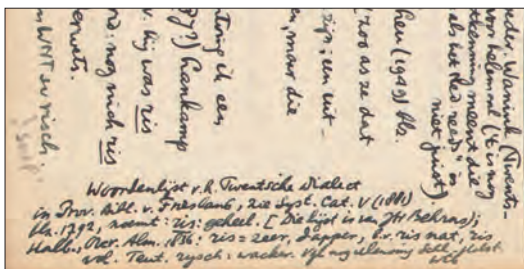 eder. Wanink (Twents-
voor helemaal ('t is nog
tkenning meent die
als het Ned. reed" in
niet juist).
hen (1949) blz.
('zoo as ze dat
uit-
en, maar die
ik een
Hankamp
v. hij was ris
ord: nog nich ris
n WNT sv risch.
Woordenlijst v.h. Twentsche Dialect
in Prov. Bibl. v. Friesland, zie Syst. Cat. V (1881)
blz. 1792, noemt: ris: geheel. [Die lijst is van Jhr Behrns);
Halb., Over. Alm. 1836: ris = zeer, dapper, b.v. ris nat, ris
vol. Teut. rysch: wacker. Vgl. nog